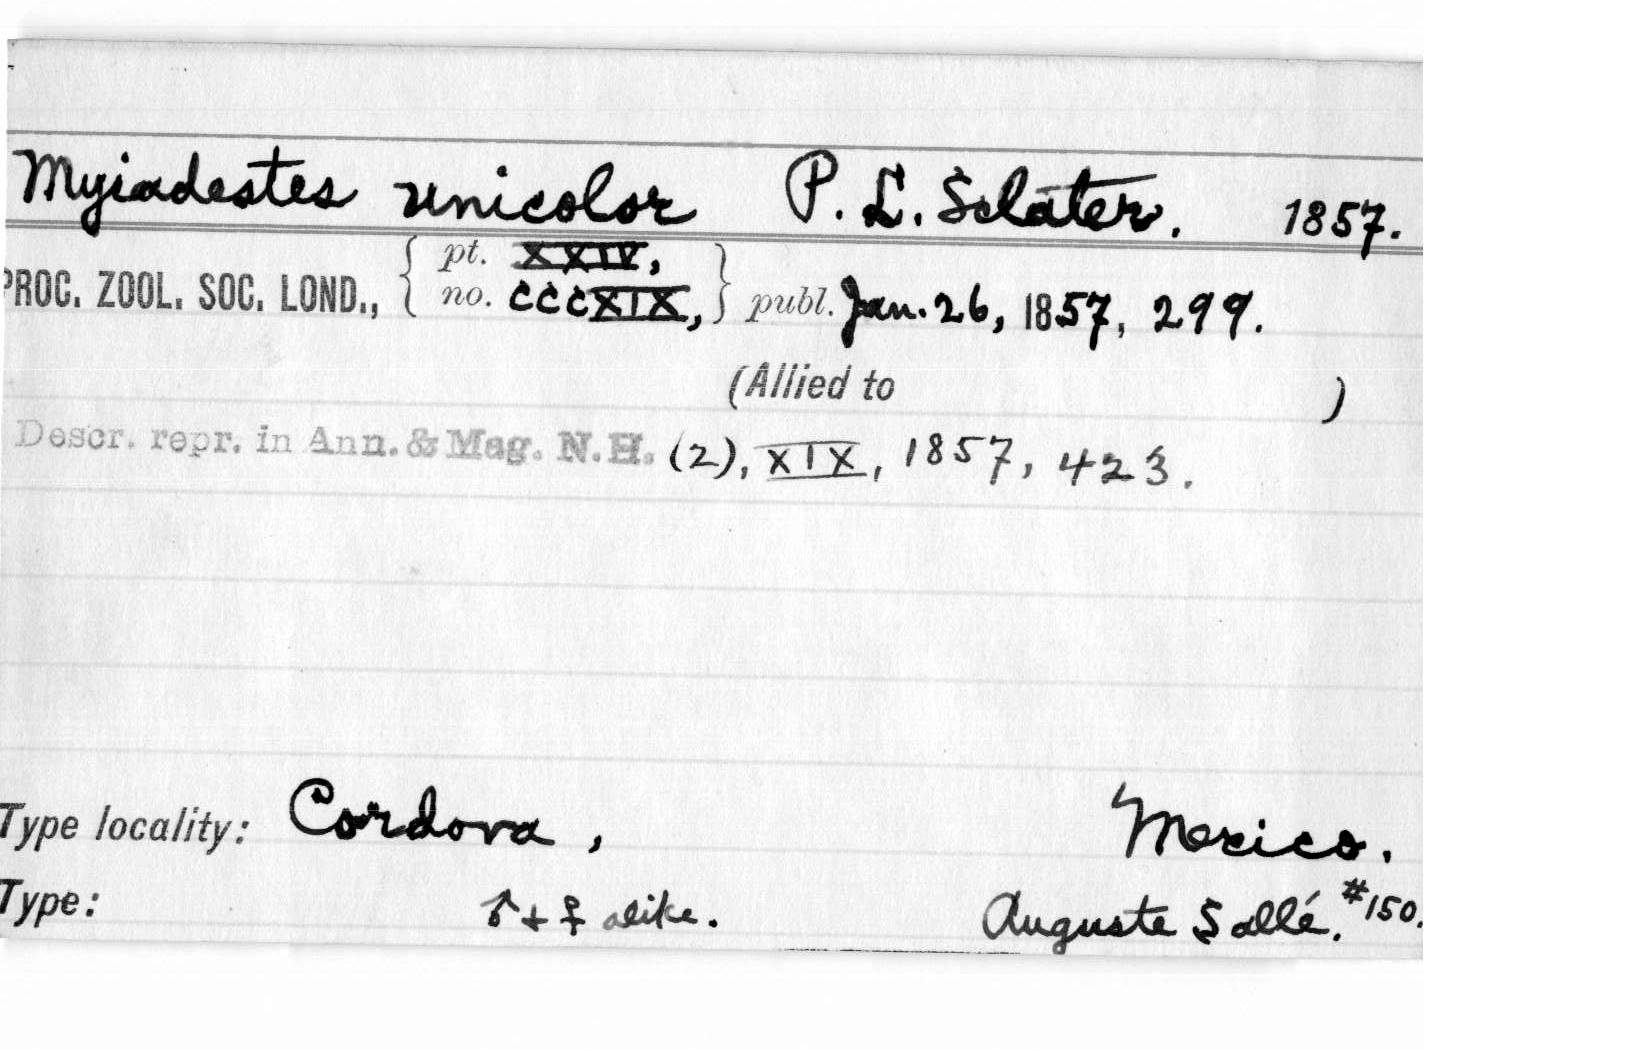 Myiadestes unicolor P. L. Sclater. 1857.
PROC. ZOOL. SOC. LOND., { pt. XXIV, no. CCCXIX, } publ. Jan. 26, 1857, 299.
(Allied to )
Descr. repr. in Ann. & Mag. N.H. (2), XIX, 1857, 423.
Type locality: Cordova, Mexico.
Type: ♂ + ♀ alike. Auguste Sallé. #150.